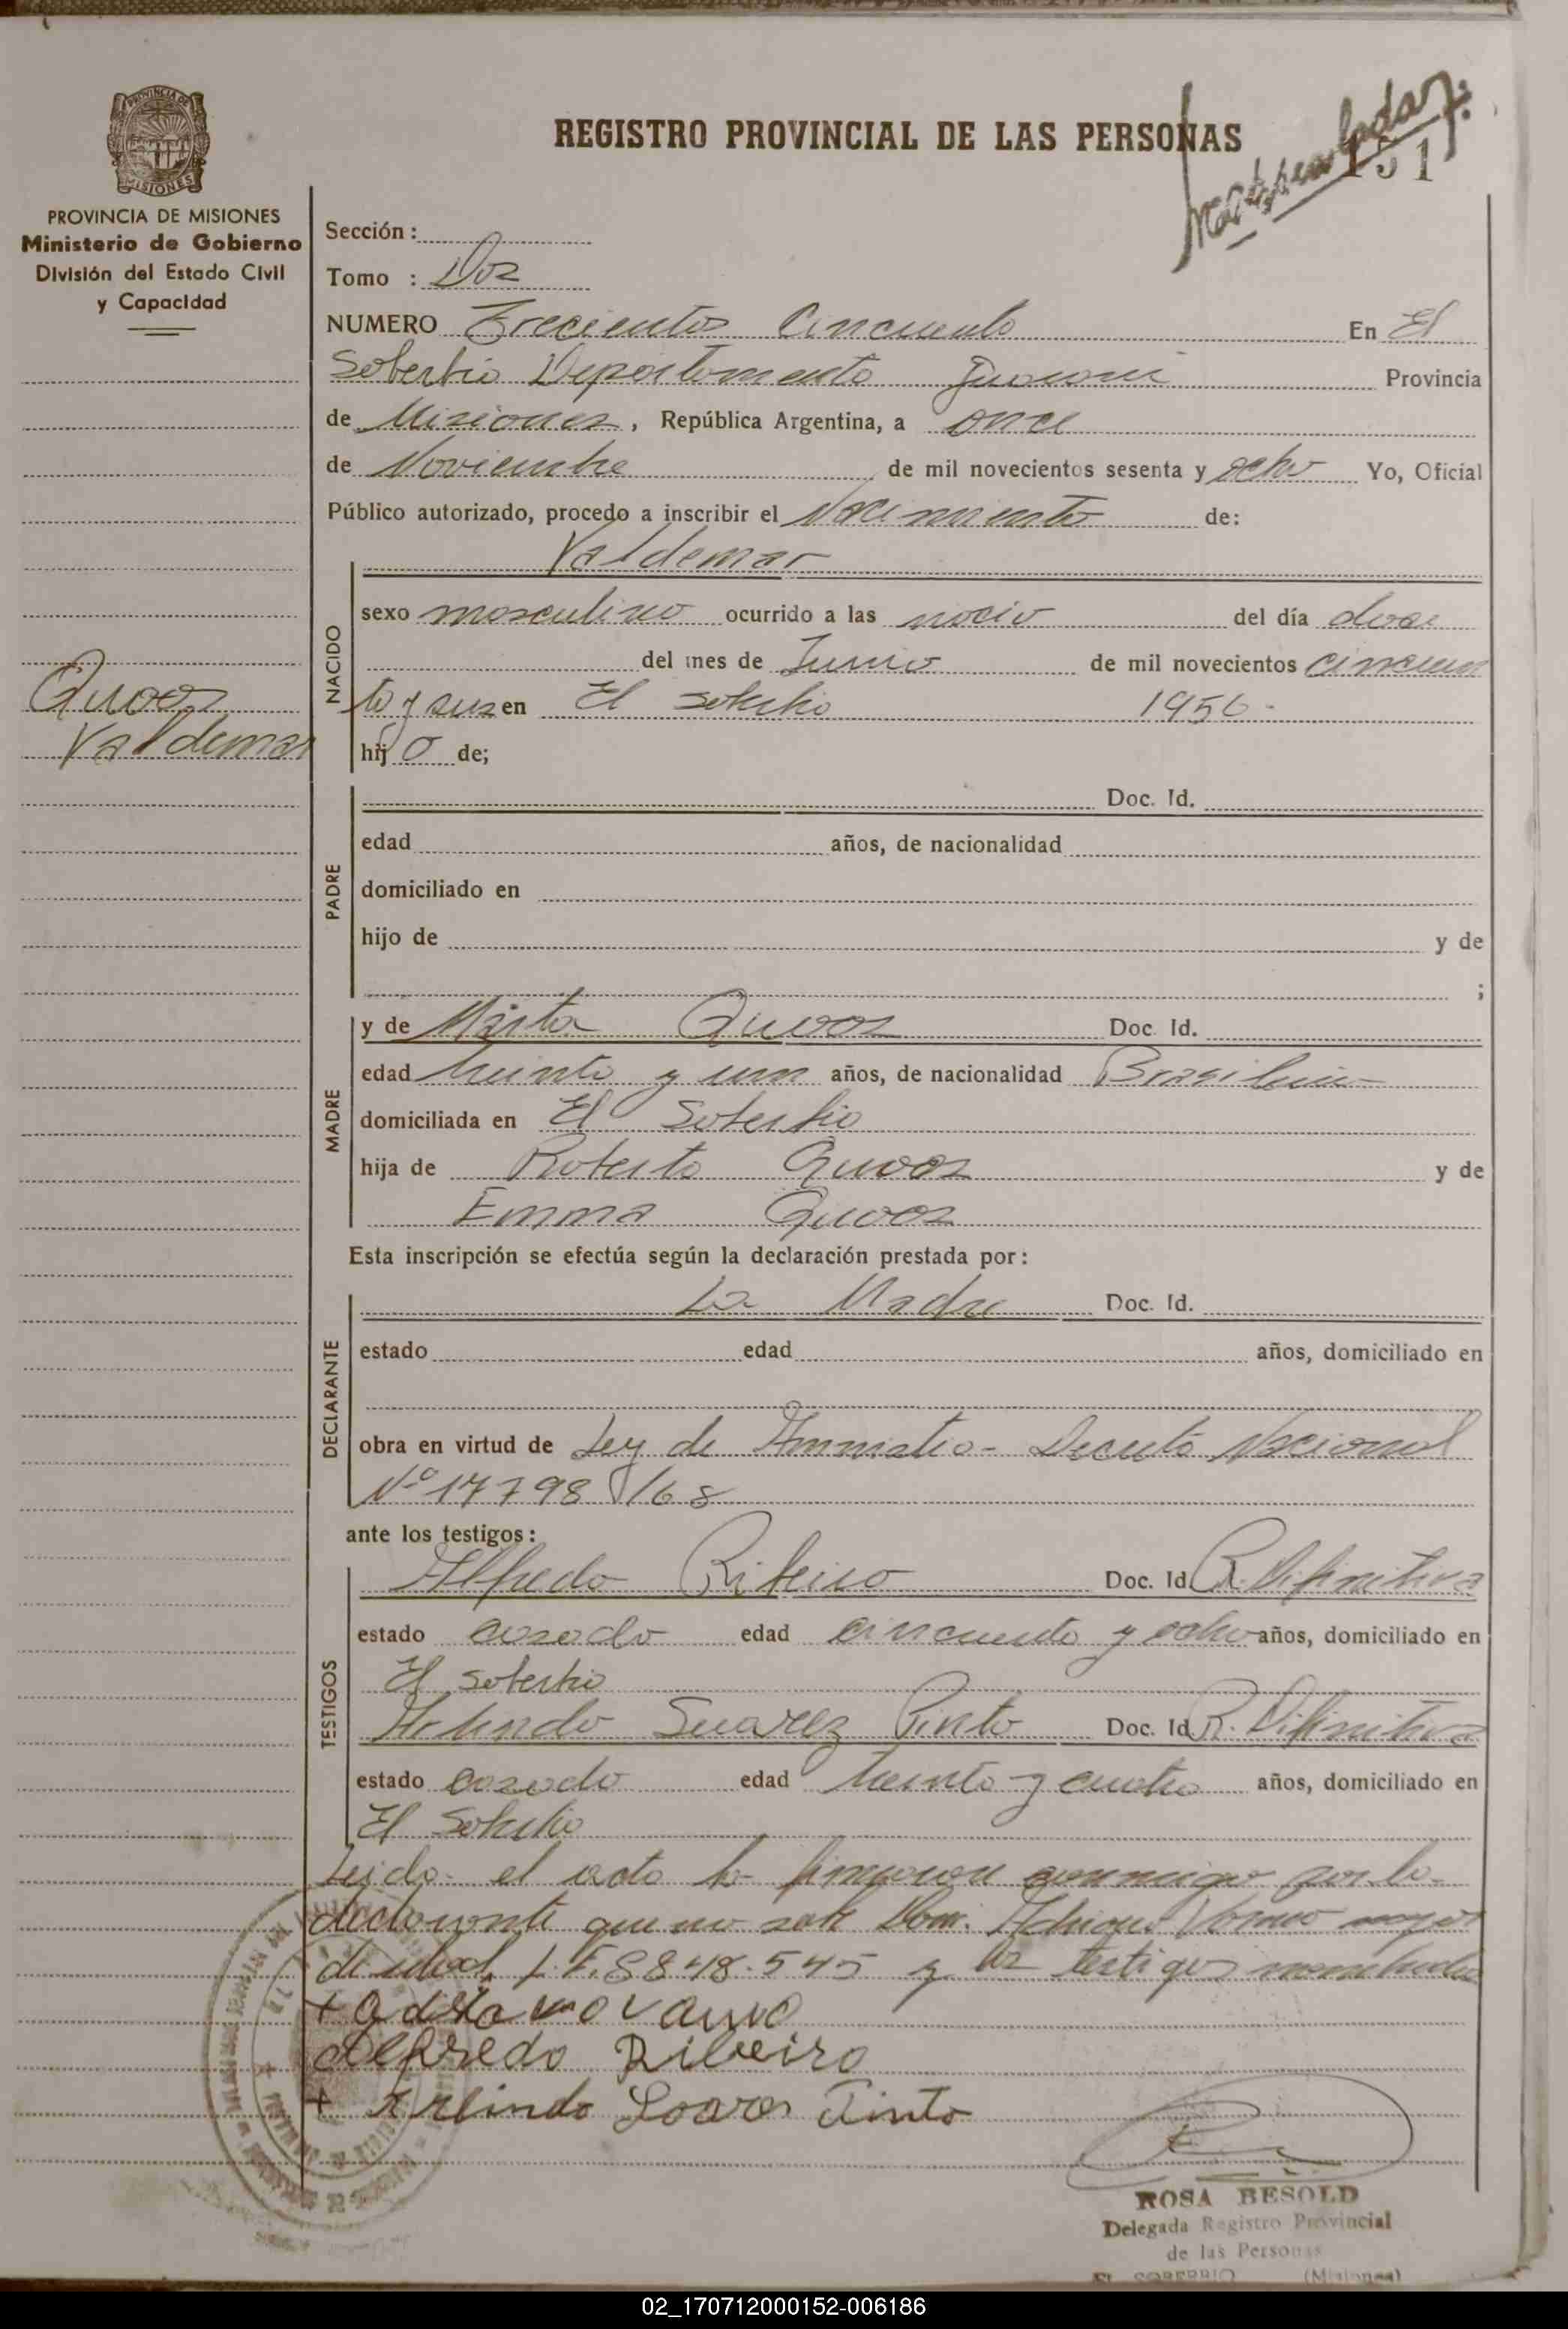 PROVINCIA DE
MISIONES
PROVINCIA DE MISIONES
Ministerio de Gobierno
División del Estado Civil
y Capacidad
REGISTRO PROVINCIAL DE LAS PERSONAS
151
Sección :
Tomo : Dos
NUMERO Trecientos Cincuenta En El
Soberbio Departamento Guarani Provincia
de Misiones, República Argentina, a once
de Noviembre de mil novecientos sesenta y ocho Yo, Oficial
Público autorizado, procedo a inscribir el Nacimiento de:
Valdemar
NACIDO
sexo masculino ocurrido a las nacio del día doce
del mes de Junio de mil novecientos cincuen
ta y seis en El Soberbio 1956.-
hijo de;
Valdemar
PADRE
Doc. Id.
edad años, de nacionalidad
domiciliado en
hijo de y de
;
MADRE
y de Marta Doc. Id.
edad treinta y un años, de nacionalidad Brasilera
domiciliada en El Soberbio
hija de Roberto y de
Emma
Esta inscripción se efectúa según la declaración prestada por:
DECLARANTE
La Madre Doc. Id.
estado edad años, domiciliado en
obra en virtud de Ley de Amnistia- Decreto Nacional
Nº 17798/68
ante los testigos:
TESTIGOS
Alfredo Ribeiro Doc. Id. R. Difinitiva
estado casado edad cincuenta y ocho años, domiciliado en
El Soberbio
Arlindo Suarez Pinto Doc. Id. R. Difinitiva
estado casado edad treinta y cuatro años, domiciliado en
El Soberbio
Leida el acta la firmaron conmigo por la
declarante que no sabe Dom. mayor
de edad, L.E. 8848.545 y los testigos nombrados
Alfredo Ribeiro
+ Arlindo Soares Pinto
ROSA BESOLD
Delegada Registro Provincial
de las Personas
EL SOBERBIO (Misiones)
02_170712000152-006186